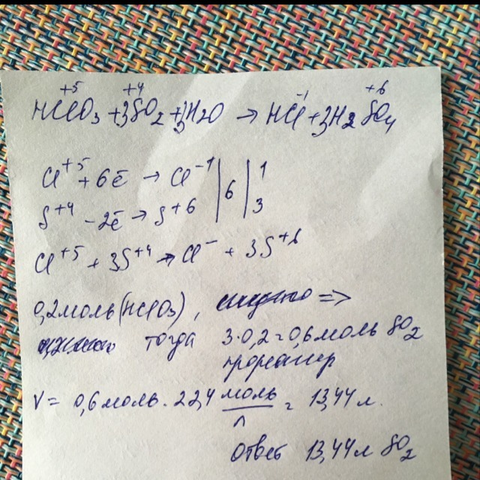 +5 +4 -1 +6
HClO₃ + 3SO₂ + 3H₂O → HCl + 3H₂SO₄
Cl⁺⁵ + 6ē → Cl⁻¹ | 6 | 1
S⁺⁴ - 2ē → S⁺⁶ | | 3
Cl⁺⁵ + 3S⁺⁴ → Cl⁻ + 3S⁺⁶
0,2 моль (HClO₃), ⇒
тогда 3·0,2 = 0,6 моль SO₂
прореагир
V = 0,6 моль · 22,4 моль/л = 13,44 л.
Ответ 13,44 л SO₂